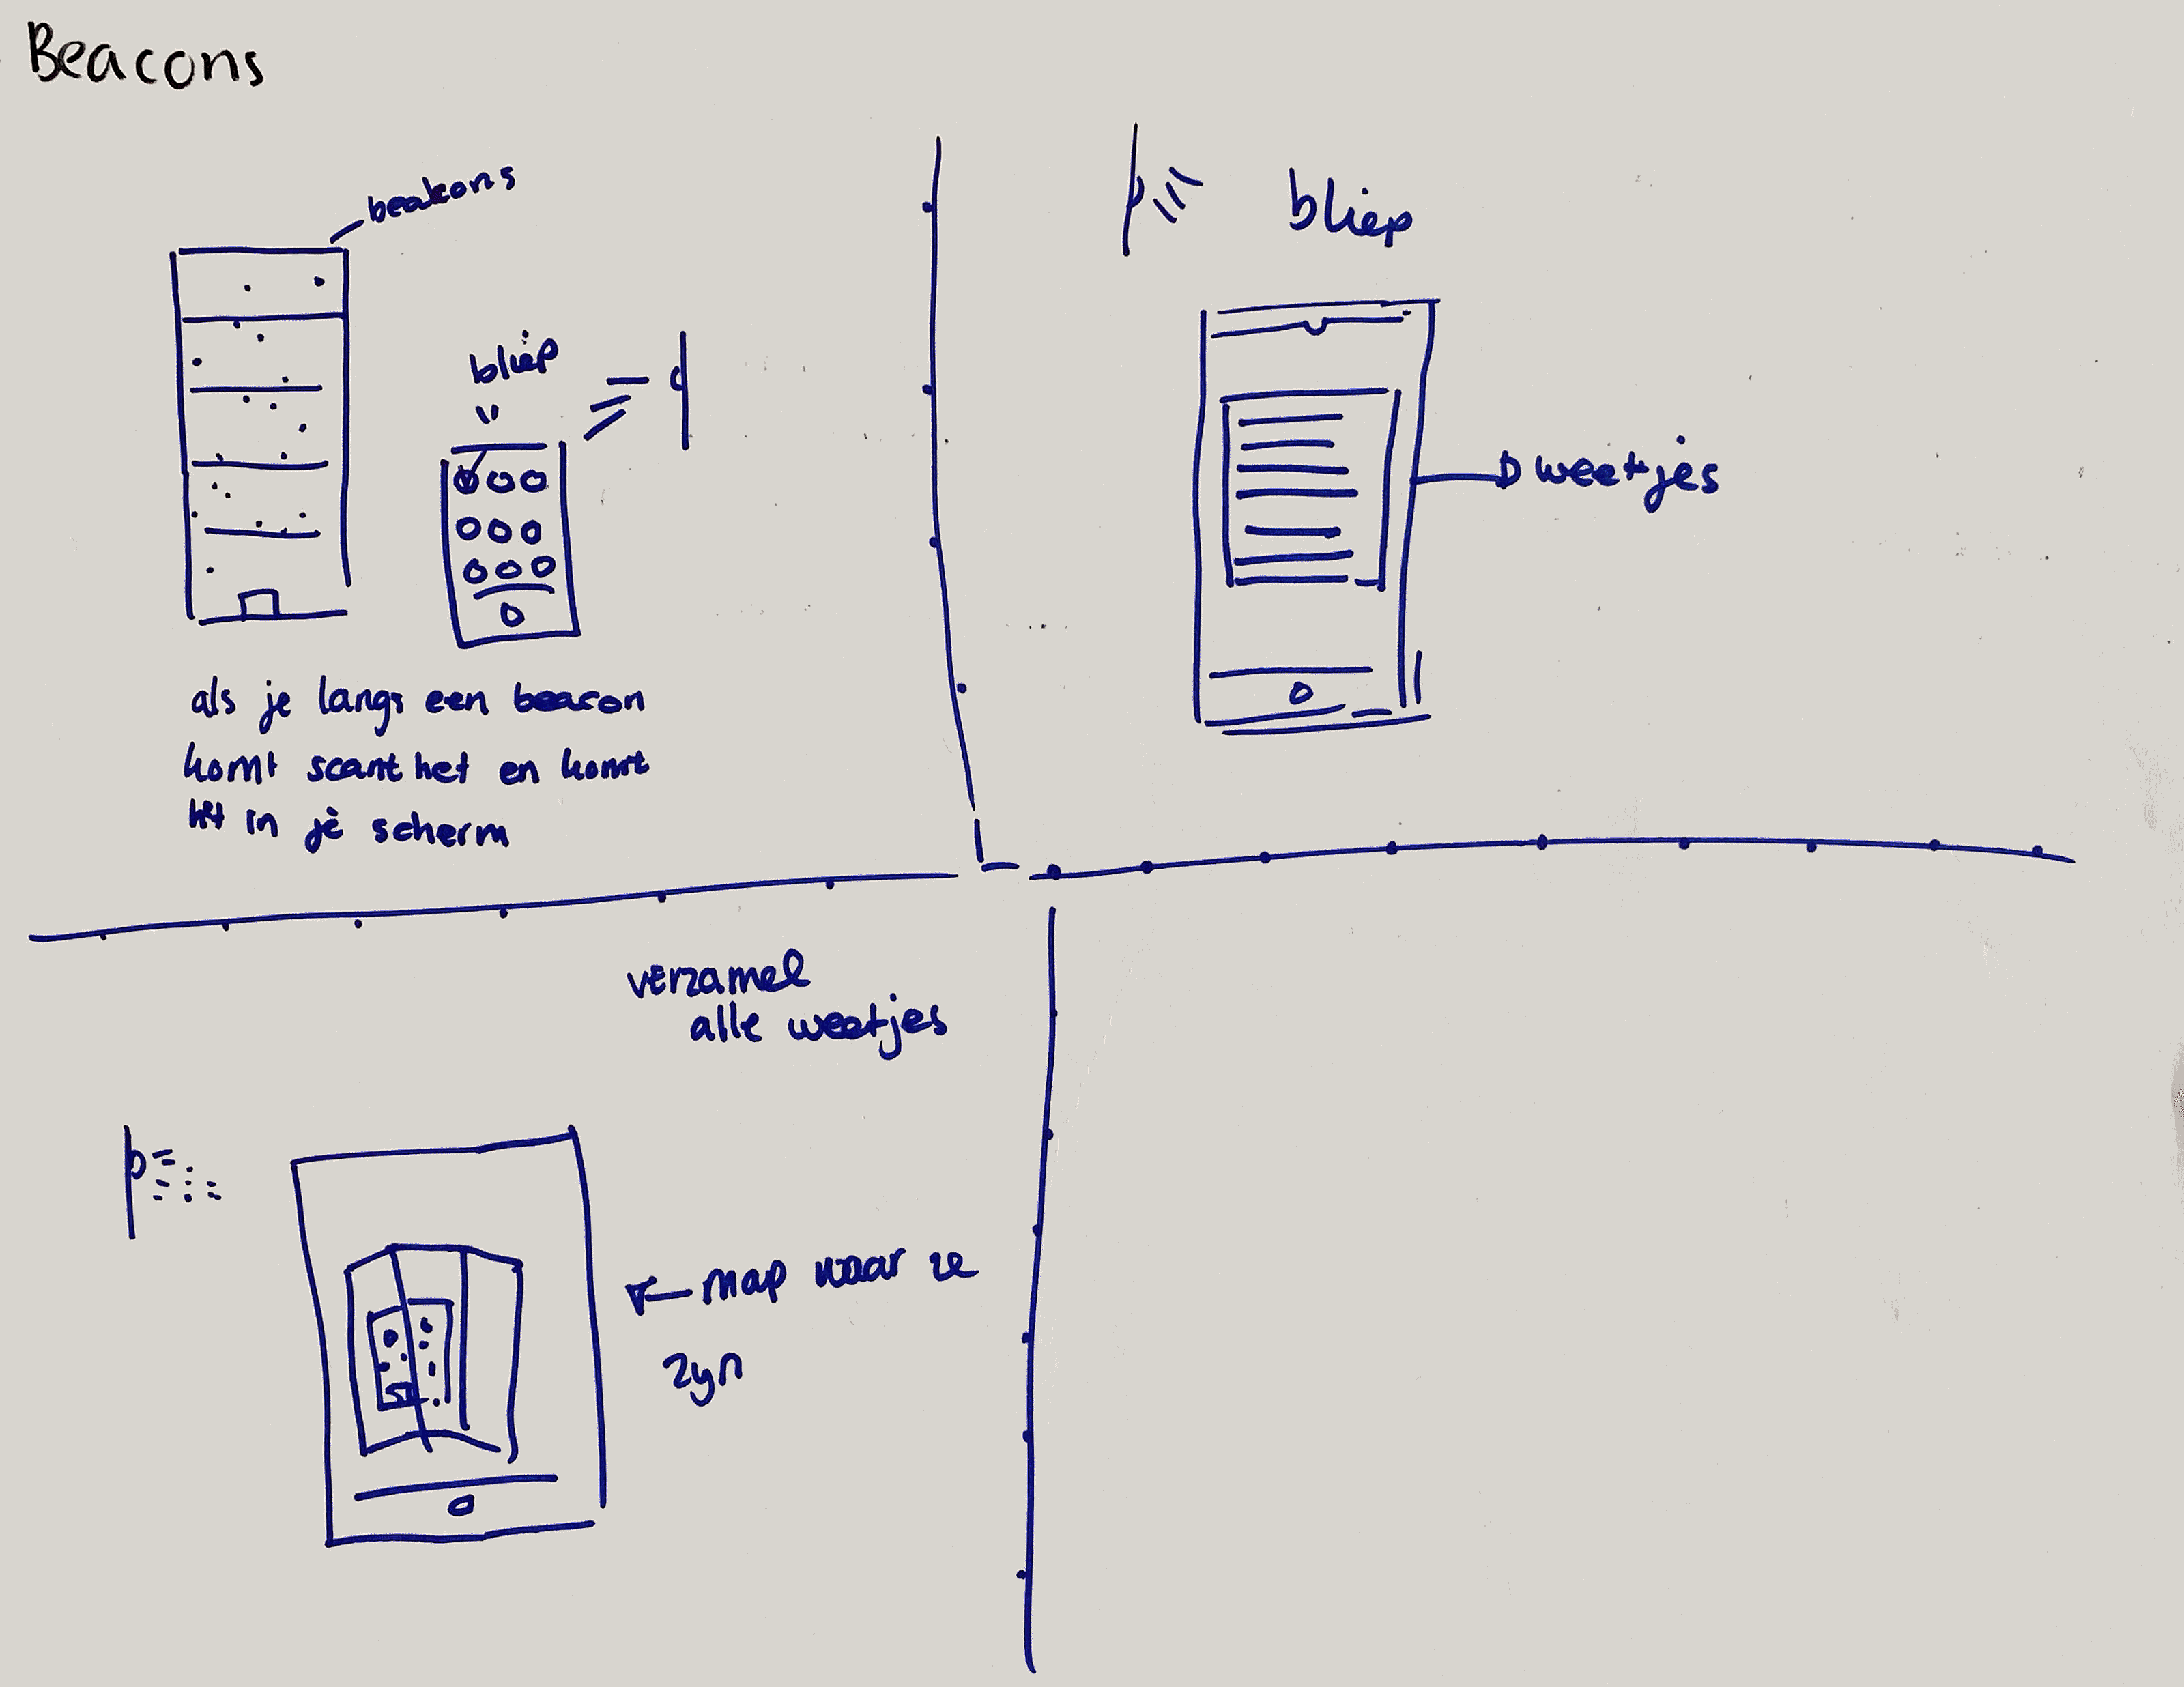 Beacons
beakons
bliep
als je langs een beacon
komt scant het en komt
het in je scherm
bliep
weetjes
verzamel
alle weetjes
map waar ze
zyn